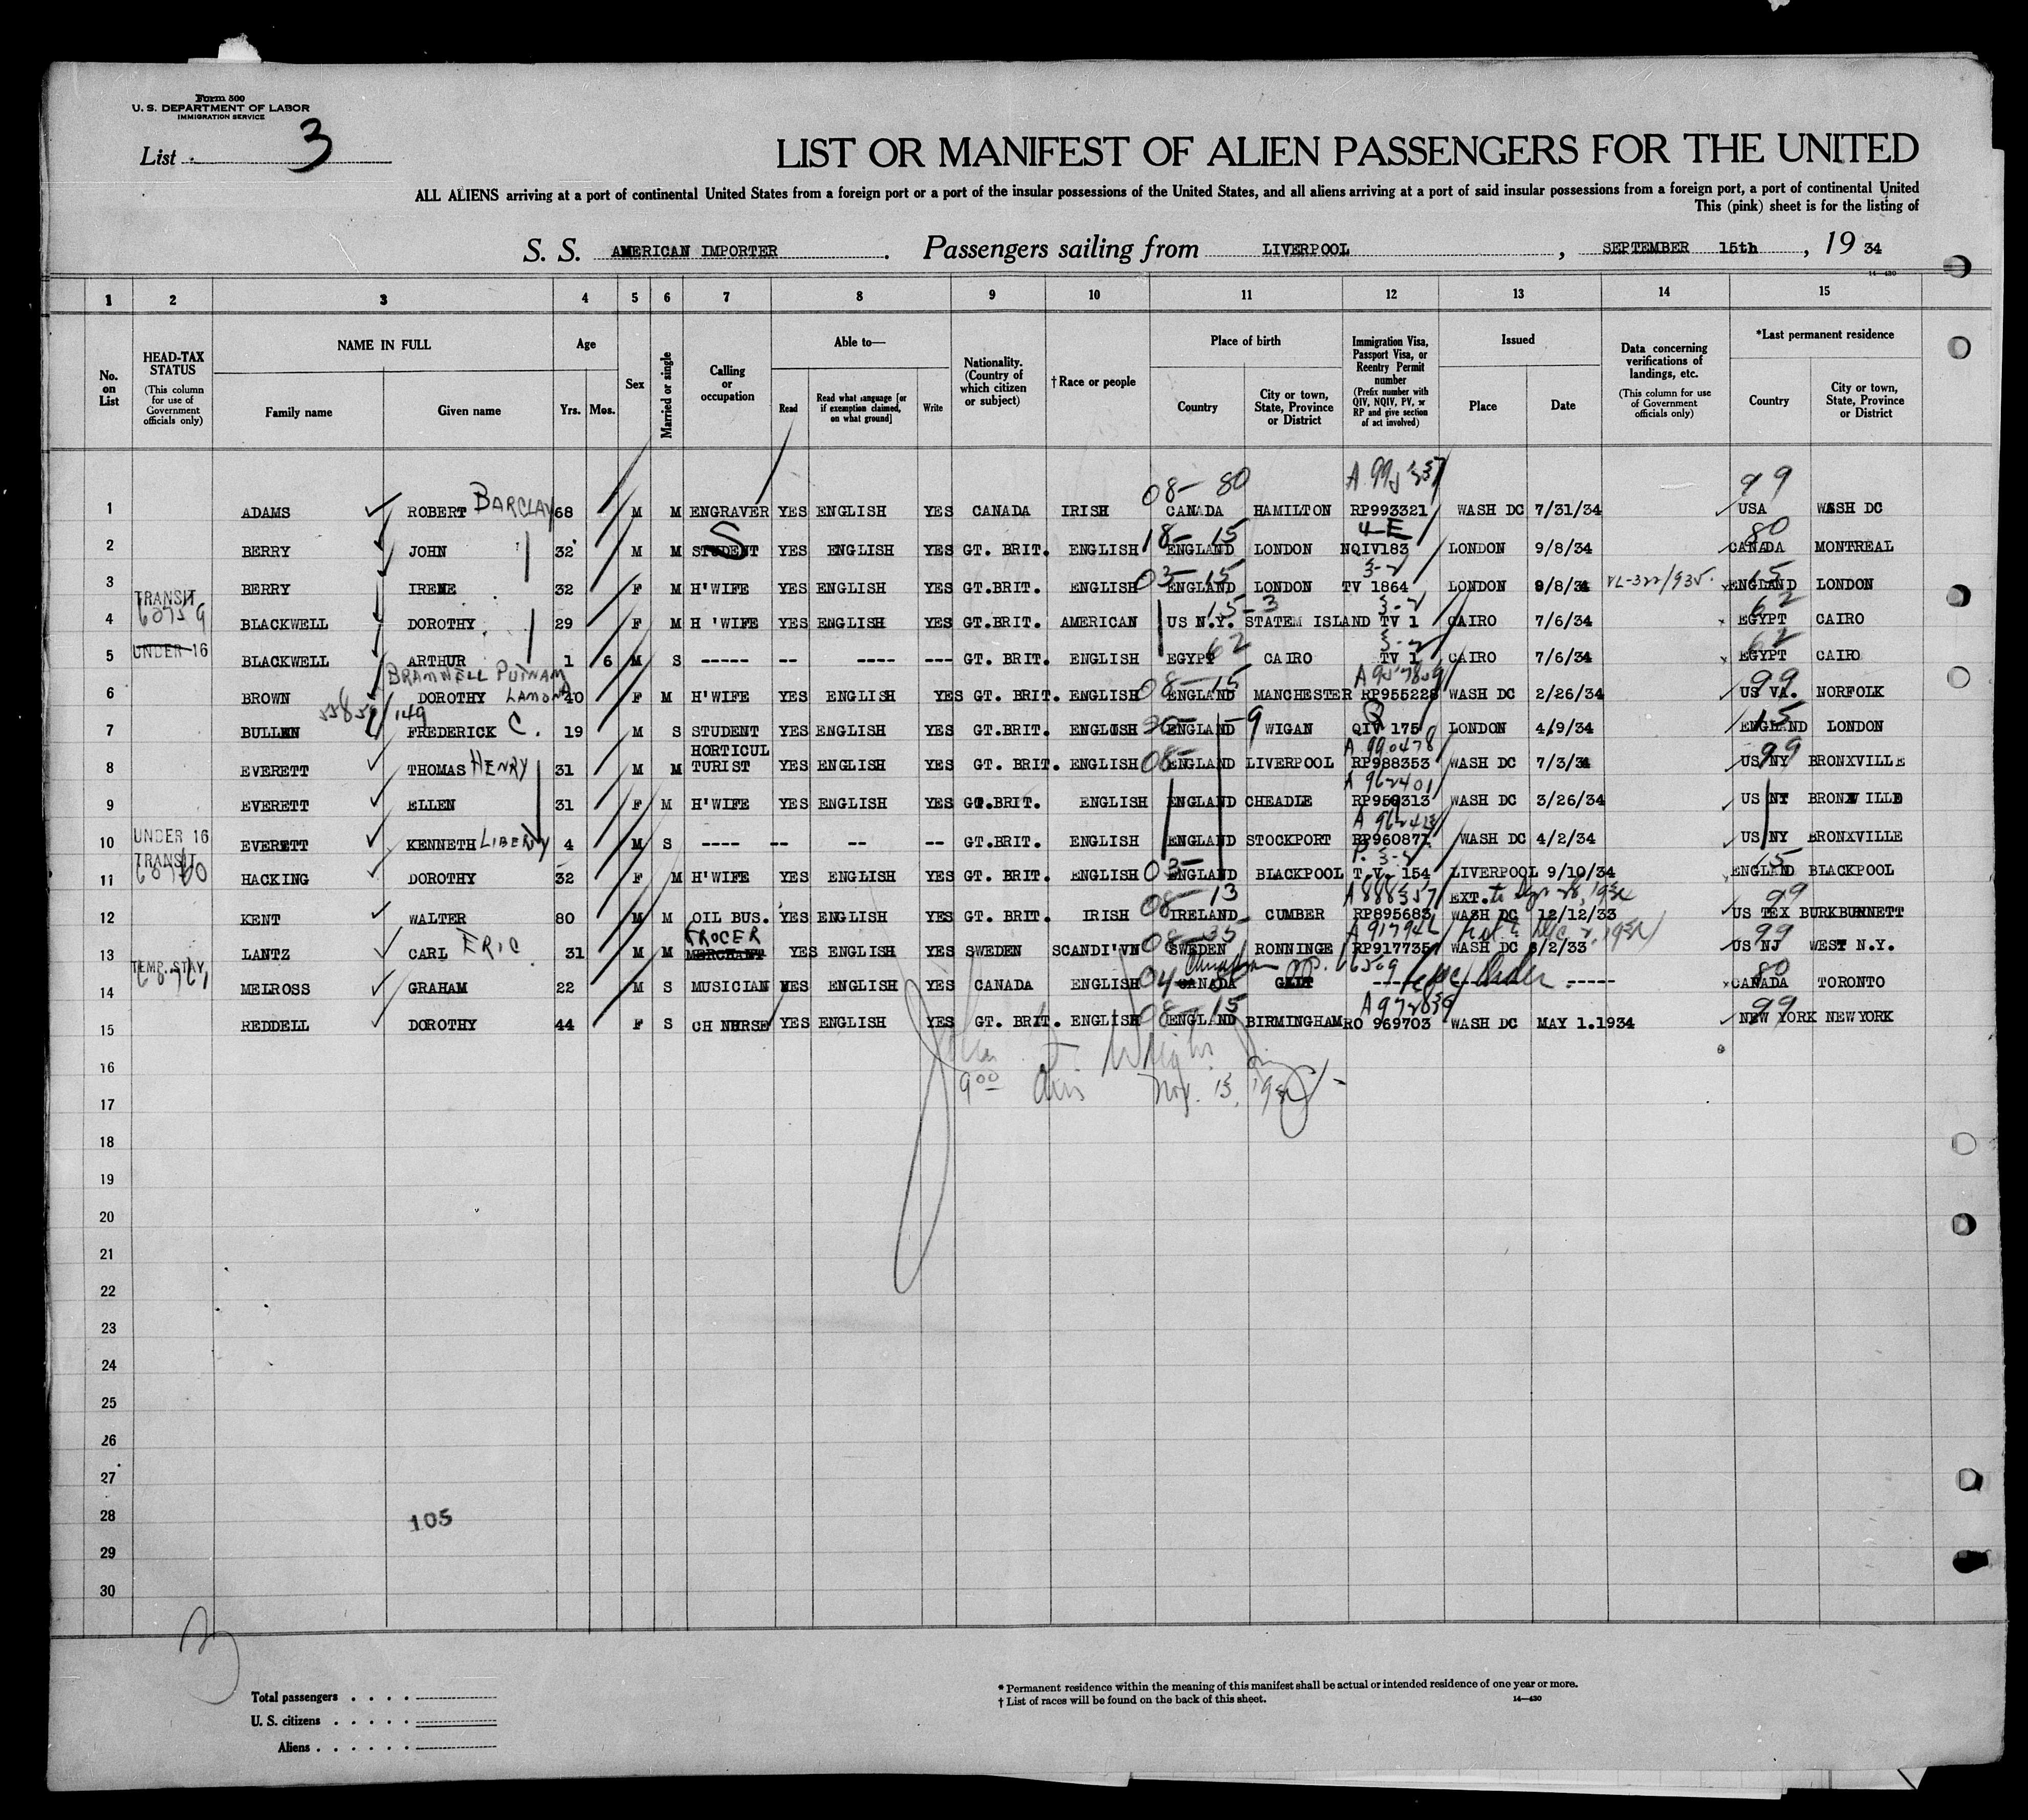 Form 500
U. S. DEPARTMENT OF LABOR
IMMIGRATION SERVICE
List 3
LIST OR MANIFEST OF ALIEN PASSENGERS FOR THE UNITED
ALL ALIENS arriving at a port of continental United States from a foreign port or a port of the insular possessions of the United States, and all aliens arriving at a port of said insular possessions from a foreign port, a port of continental United
This (pink) sheet is for the listing of
S. S. AMERICAN IMPORTER . Passengers sailing from LIVERPOOL , SEPTEMBER 15th , 19 34
14—430
1 2 3 4 5 6 7 8 9 10 11 12 13 14 15
No. on List
HEAD-TAX STATUS (This column for use of Government officials only)
NAME IN FULL
Family name Given name
Age
Yrs. Mos.
Sex
Married or single
Calling or occupation
Able to—
Read Read what language [or if exemption claimed, on what ground] Write
Nationality. (Country of which citizen or subject)
†Race or people
Place of birth
Country City or town, State, Province or District
Immigration Visa, Passport Visa, or Reentry Permit number (Prefix number with QIV, NQIV, PV, or RP and give section of act involved)
Issued
Place Date
Data concerning verifications of landings, etc. (This column for use of Government officials only)
*Last permanent residence
Country City or town, State, Province or District
08- 80 99
1 ADAMS ROBERT BARCLAY 68 M M ENGRAVER YES ENGLISH YES CANADA IRISH CANADA HAMILTON RP993321 WASH DC 7/31/34 USA WASH DC
18- 15 4-E 80
2 BERRY JOHN 32 M M STUDENT YES ENGLISH YES GT. BRIT. ENGLISH ENGLAND LONDON NQIV183 LONDON 9/8/34 CANADA MONTREAL
03- 15 3-2 15
3 BERRY IRENE 32 F M H'WIFE YES ENGLISH YES GT.BRIT. ENGLISH ENGLAND LONDON TV 1864 LONDON 9/8/34 ENGLAND LONDON
TRANSIT 15-3 3-2 62
4 BLACKWELL DOROTHY 29 F M H 'WIFE YES ENGLISH YES GT.BRIT. AMERICAN US N.Y. STATEM ISLAND TV 1 CAIRO 7/6/34 EGYPT CAIRO
UNDER 16 62 3-2 62
5 BLACKWELL ARTHUR 1 6 M S ----- -- ---- --- GT. BRIT. ENGLISH EGYPT CAIRO TV 1 CAIRO 7/6/34 EGYPT CAIRO
BRAMWELL PUTNAM
08- 15 99
6 BROWN DOROTHY LAMOND 40 F M H'WIFE YES ENGLISH YES GT. BRIT. ENGLISH ENGLAND MANCHESTER RP955228 WASH DC 2/26/34 US VA. NORFOLK
149 15
7 BULLEN FREDERICK C. 19 M S STUDENT YES ENGLISH YES GT.BRIT. ENGLISH ENGLAND 9 WIGAN QIV 175 LONDON 4/9/34 ENGLAND LONDON
A 990478 99
8 EVERETT THOMAS HENRY 31 M M HORTICULTURIST YES ENGLISH YES GT. BRIT. ENGLISH 08- ENGLAND LIVERPOOL RP988353 WASH DC 7/3/34 US NY BRONXVILLE
A 962401
9 EVERETT ELLEN 31 F M H'WIFE YES ENGLISH YES GT.BRIT. ENGLISH ENGLAND CHEADLE RP959313 WASH DC 3/26/34 US NY BRONXVILLE
UNDER 16
10 EVERETT KENNETH LIBERTY 4 M S ---- -- -- -- GT.BRIT. ENGLISH ENGLAND STOCKPORT RP960871 WASH DC 4/2/34 US NY BRONXVILLE
TRANSIT P. 3-2 15
11 HACKING DOROTHY 32 F M H'WIFE YES ENGLISH YES GT. BRIT. ENGLISH 03- ENGLAND BLACKPOOL T.V. 154 LIVERPOOL 9/10/34 ENGLAND BLACKPOOL
13 A888357 EXT. to 99
12 KENT WALTER 80 M M OIL BUS. YES ENGLISH YES GT. BRIT. IRISH 08- IRELAND CUMBER RP895683 WASH DC 12/12/33 US TEX BURKBURNETT
GROCER 35 A917942 99
13 LANTZ CARL ERIC 31 M M MERCHANT YES ENGLISH YES SWEDEN SCANDI'VN 08- SWEDEN RONNINGE RP917735 WASH DC 8/2/33 US NJ WEST N.Y.
TEMP. STAY Canadian PP. 66509 80
14 MELROSS GRAHAM 22 M S MUSICIAN YES ENGLISH YES CANADA ENGLISH 04- CANADA GALT ----- CANADA TORONTO
15 A972839 99
15 REDDELL DOROTHY 44 F S CH NURSE YES ENGLISH YES GT. BRIT. ENGLISH 08- ENGLAND BIRMINGHAM RO 969703 WASH DC MAY 1.1934 NEW YORK NEW YORK
16
9 00 Nov. 13,
17
18
19
20
21
22
23
24
25
26
27
28 105
29
30
3
Total passengers . . . .
U. S. citizens . . . . .
Aliens . . . . . .
* Permanent residence within the meaning of this manifest shall be actual or intended residence of one year or more.
† List of races will be found on the back of this sheet.
14—430